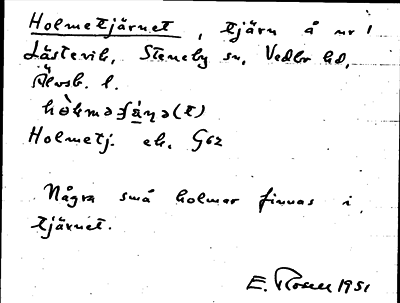 Holmetjärnet, tjärn å nr 1
Låstevik, Steneby sn, Vedbo hd,
Älvsb. l.
Holmetj. ek. G62
Några små holmar finnas i
tjärnet.
E. Rosell 1951